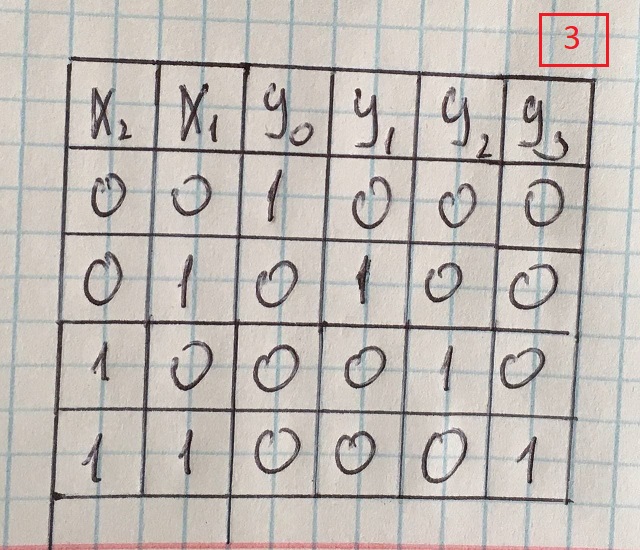 3
X₂ X₁ y₀ y₁ y₂ y₃
0 0 1 0 0 0
0 1 0 1 0 0
1 0 0 0 1 0
1 1 0 0 0 1